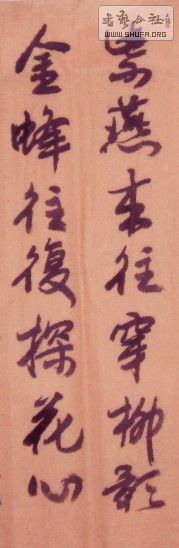 紫燕来往穿柳影
金蜂往復探花心
書藝公社
WWW.SHUFA.ORG